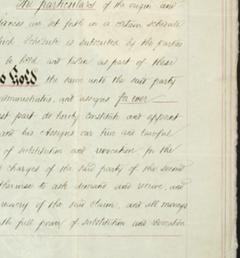 The particulars of the origin and
are set forth in a certain schedule
which Schedule is subscribed by the parties
to be held and taken as part of these
to Hold the same unto the said party
administrators, and assigns for ever
part do hereby constitute and appoint
and his assigns our true and lawful
of substitution and revocation for the
charges of the said party of the second
otherwise to ask demand and receive, and
recovery of the said claim, and all moneys
with full power of substitution and revocation